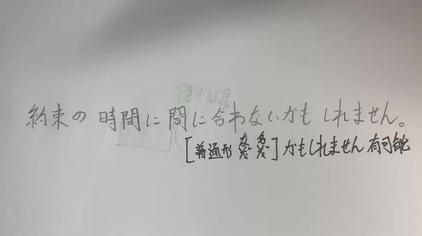 約束の時間に間に合わないかもしれません。
[普通形 ] かもしれません 有可能